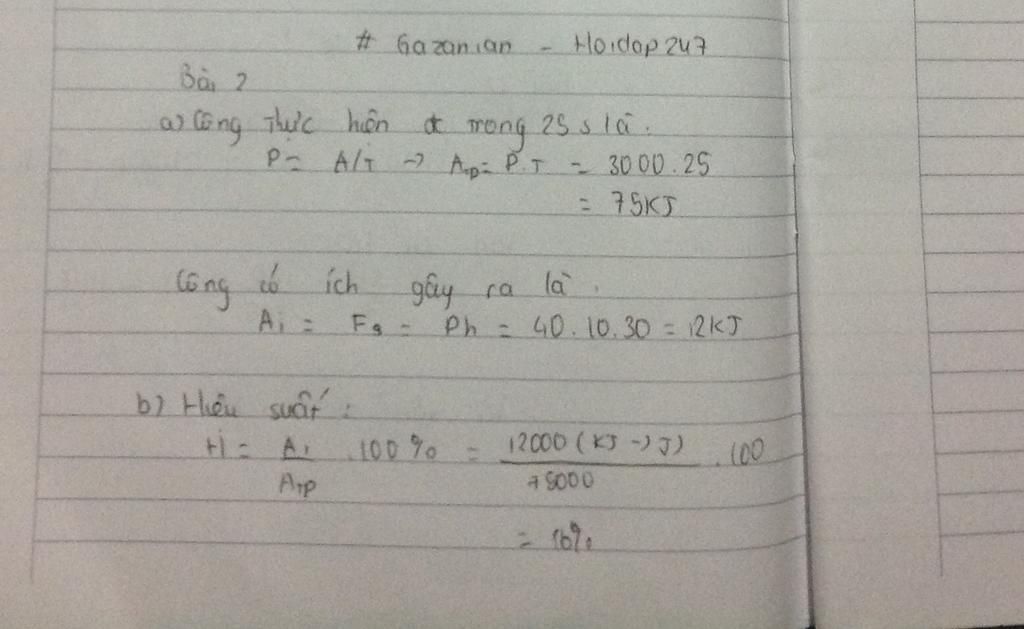 # Gazanian - Hoidap247
Bài 2
a) Công thực hiện đc trong 25 s là.
P = A/T → Atp = P.T = 3000.25
= 75KJ
Công có ích gây ra là.
Ai = Fs = Ph = 40.10.30 = 12KJ
b) Hiệu suất :
H = Ai / Atp .100% = 12000 (KJ → J) / 75000 .100
= 16%